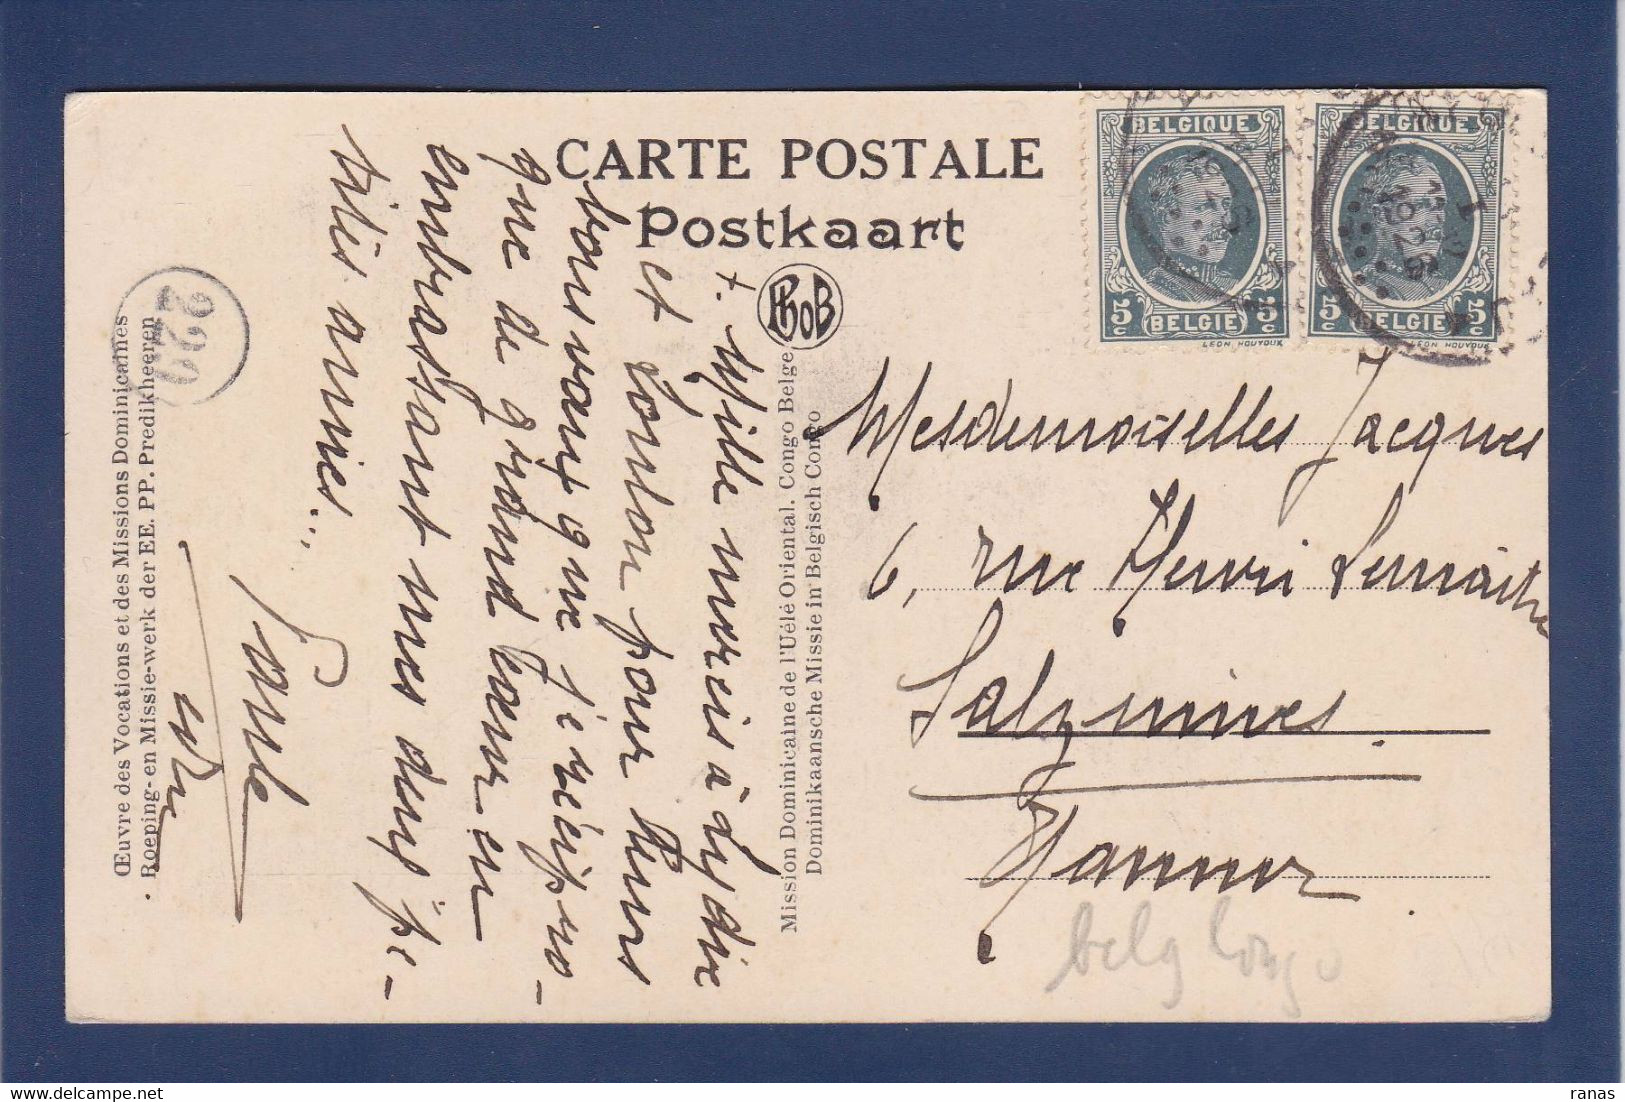 CARTE POSTALE
Postkaart
BELGIQUE
5c 5c
BELGIE
LEON HOUYOUX
BELGIQUE
5c 5c
BELGIE
LEON HOUYOUX
1926
Mesdemoiselles Jacques
6, rue Henri Lemaitre
Salzinnes
Namur
belg Congo
Mission Dominicaine de l'Uélé Oriental. Congo Belge
Dominikaansche Missie in Belgisch Congo
+. Mille mercis à Lydie
et Loulou pour leurs
bons vœux que je récipro-
que de grand cœur en
embrassant mes deux pe-
tites amies...
Paule
Œuvre des Vocations et des Missions Dominicaines
Roeping- en Missie-werk der EE. PP. Predikheeren
220
ranas